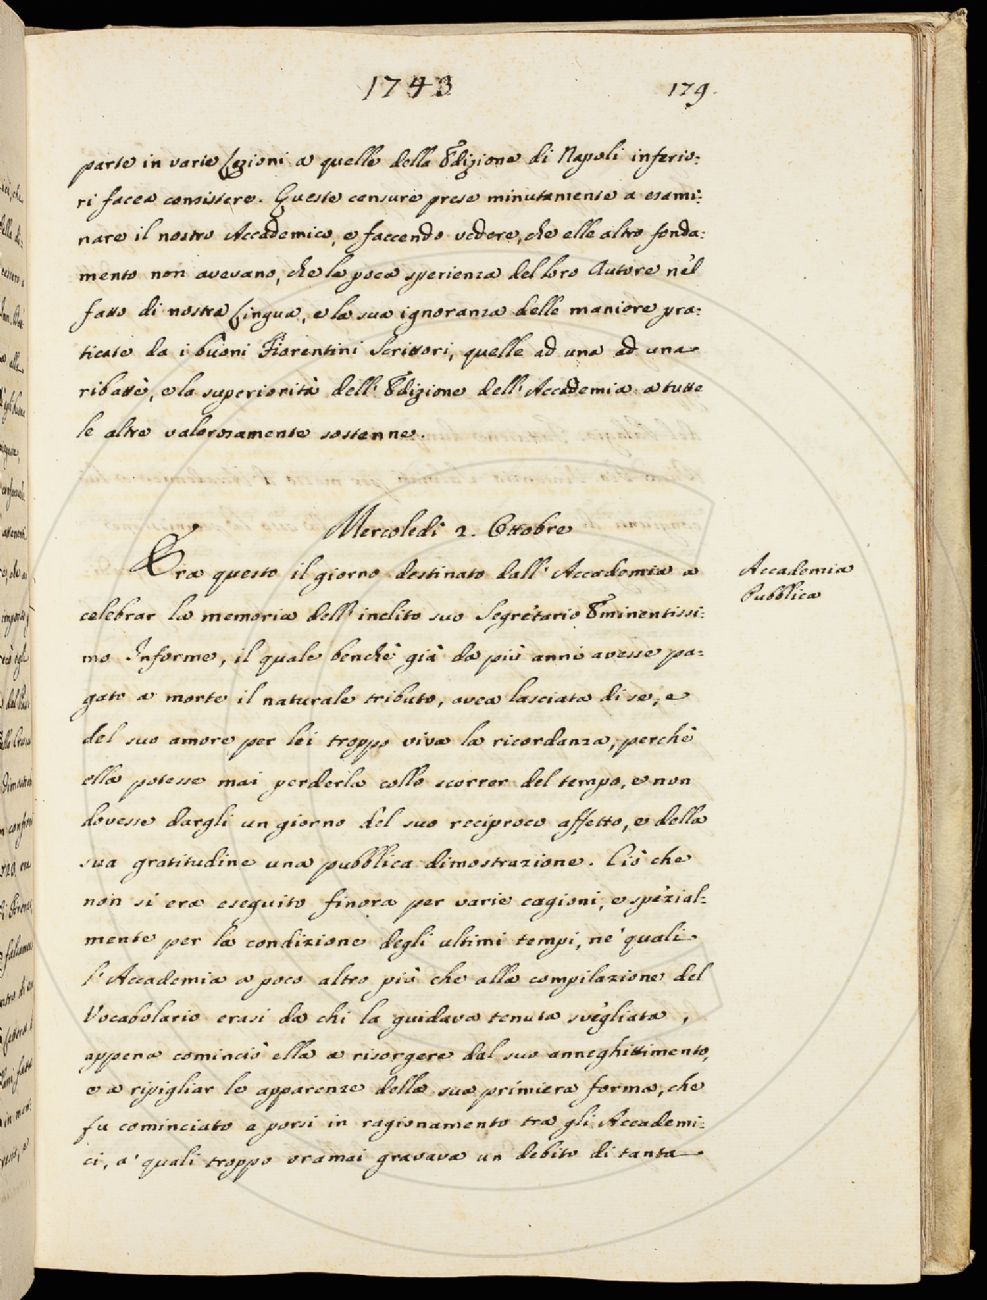 1743
179.
parte in varie Lezioni a quelle della Edizione di Napoli inferio:
ri facea consistere. Queste censure prese minutamente a esami:
nare il nostro Accademico, e faccendo vedere, che elle altro fonda:
mento non avevano, che la poca sperienza del loro Autore nel
fatto di nostra Lingua, e la sua ignoranza delle maniere pra:
ticate da i buoni Fiorentini Scrittori, quelle ad una ad una
ribattè, e la superiorità dell' Edizione dell' Accademia a tutte
le altre valorosamente sostenne.
Mercoledì 2. Ottobre
Era questo il giorno destinato dall' Accademia a
celebrar la memoria dell' inclito suo Segretario Eminentissi:
mo Informe, il quale benchè già da più anni avesse pa:
gato a morte il naturale tributo, avea lasciata di se, e
del suo amore per lei troppo viva la ricordanza, perchè
ella potesse mai perderla collo scorrer del tempo, e non
dovesse dargli un giorno del suo reciproco affetto, e della
sua gratitudine una pubblica dimostrazione. Ciò che
non si era eseguito finora per varie cagioni, e spezial:
mente per la condizione degli ultimi tempi, ne' quali
l' Accademia a poco altro più che alla compilazione del
Vocabolario erasi da chi la guidava tenuta svegliata,
appena cominciò ella a risorgere dal suo anneghittimento,
e a ripigliar le apparenze della sua primiera forma, che
fu cominciato a porsi in ragionamento tra gli Accademi:
ci, a' quali troppo oramai gravava un debito di tanta
Accademia
Pubblica